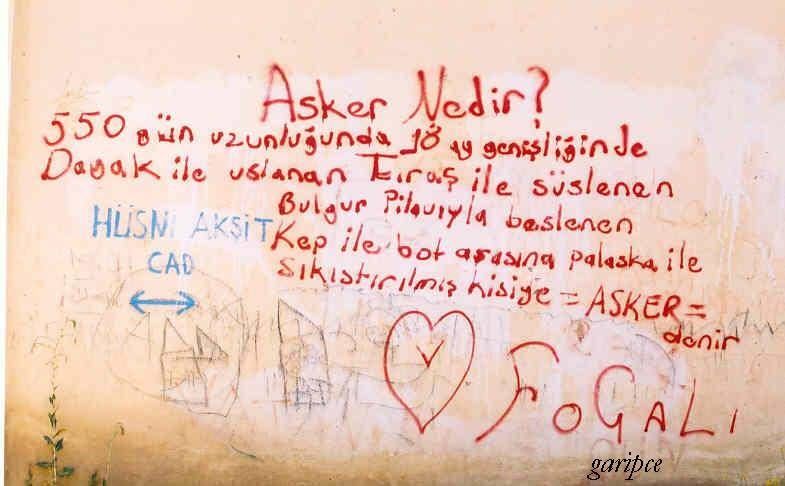 Asker Nedir?
550 gün uzunluğunda 18 ay genişliğinde
Dayak ile uslanan Tıraş ile süslenen
Bulgur Pilavıyla beslenen
Kep ile bot arasına palaska ile
Sıkıştırılmış kişiye = ASKER =
denir
HÜSNİ AKŞİT
CAD
V
FOGALI
garipce